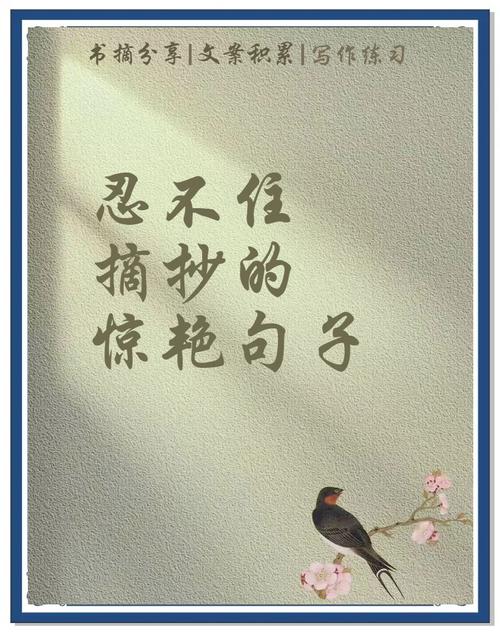 书摘分享|文案积累|写作练习
忍不住
摘抄的
惊艳句子